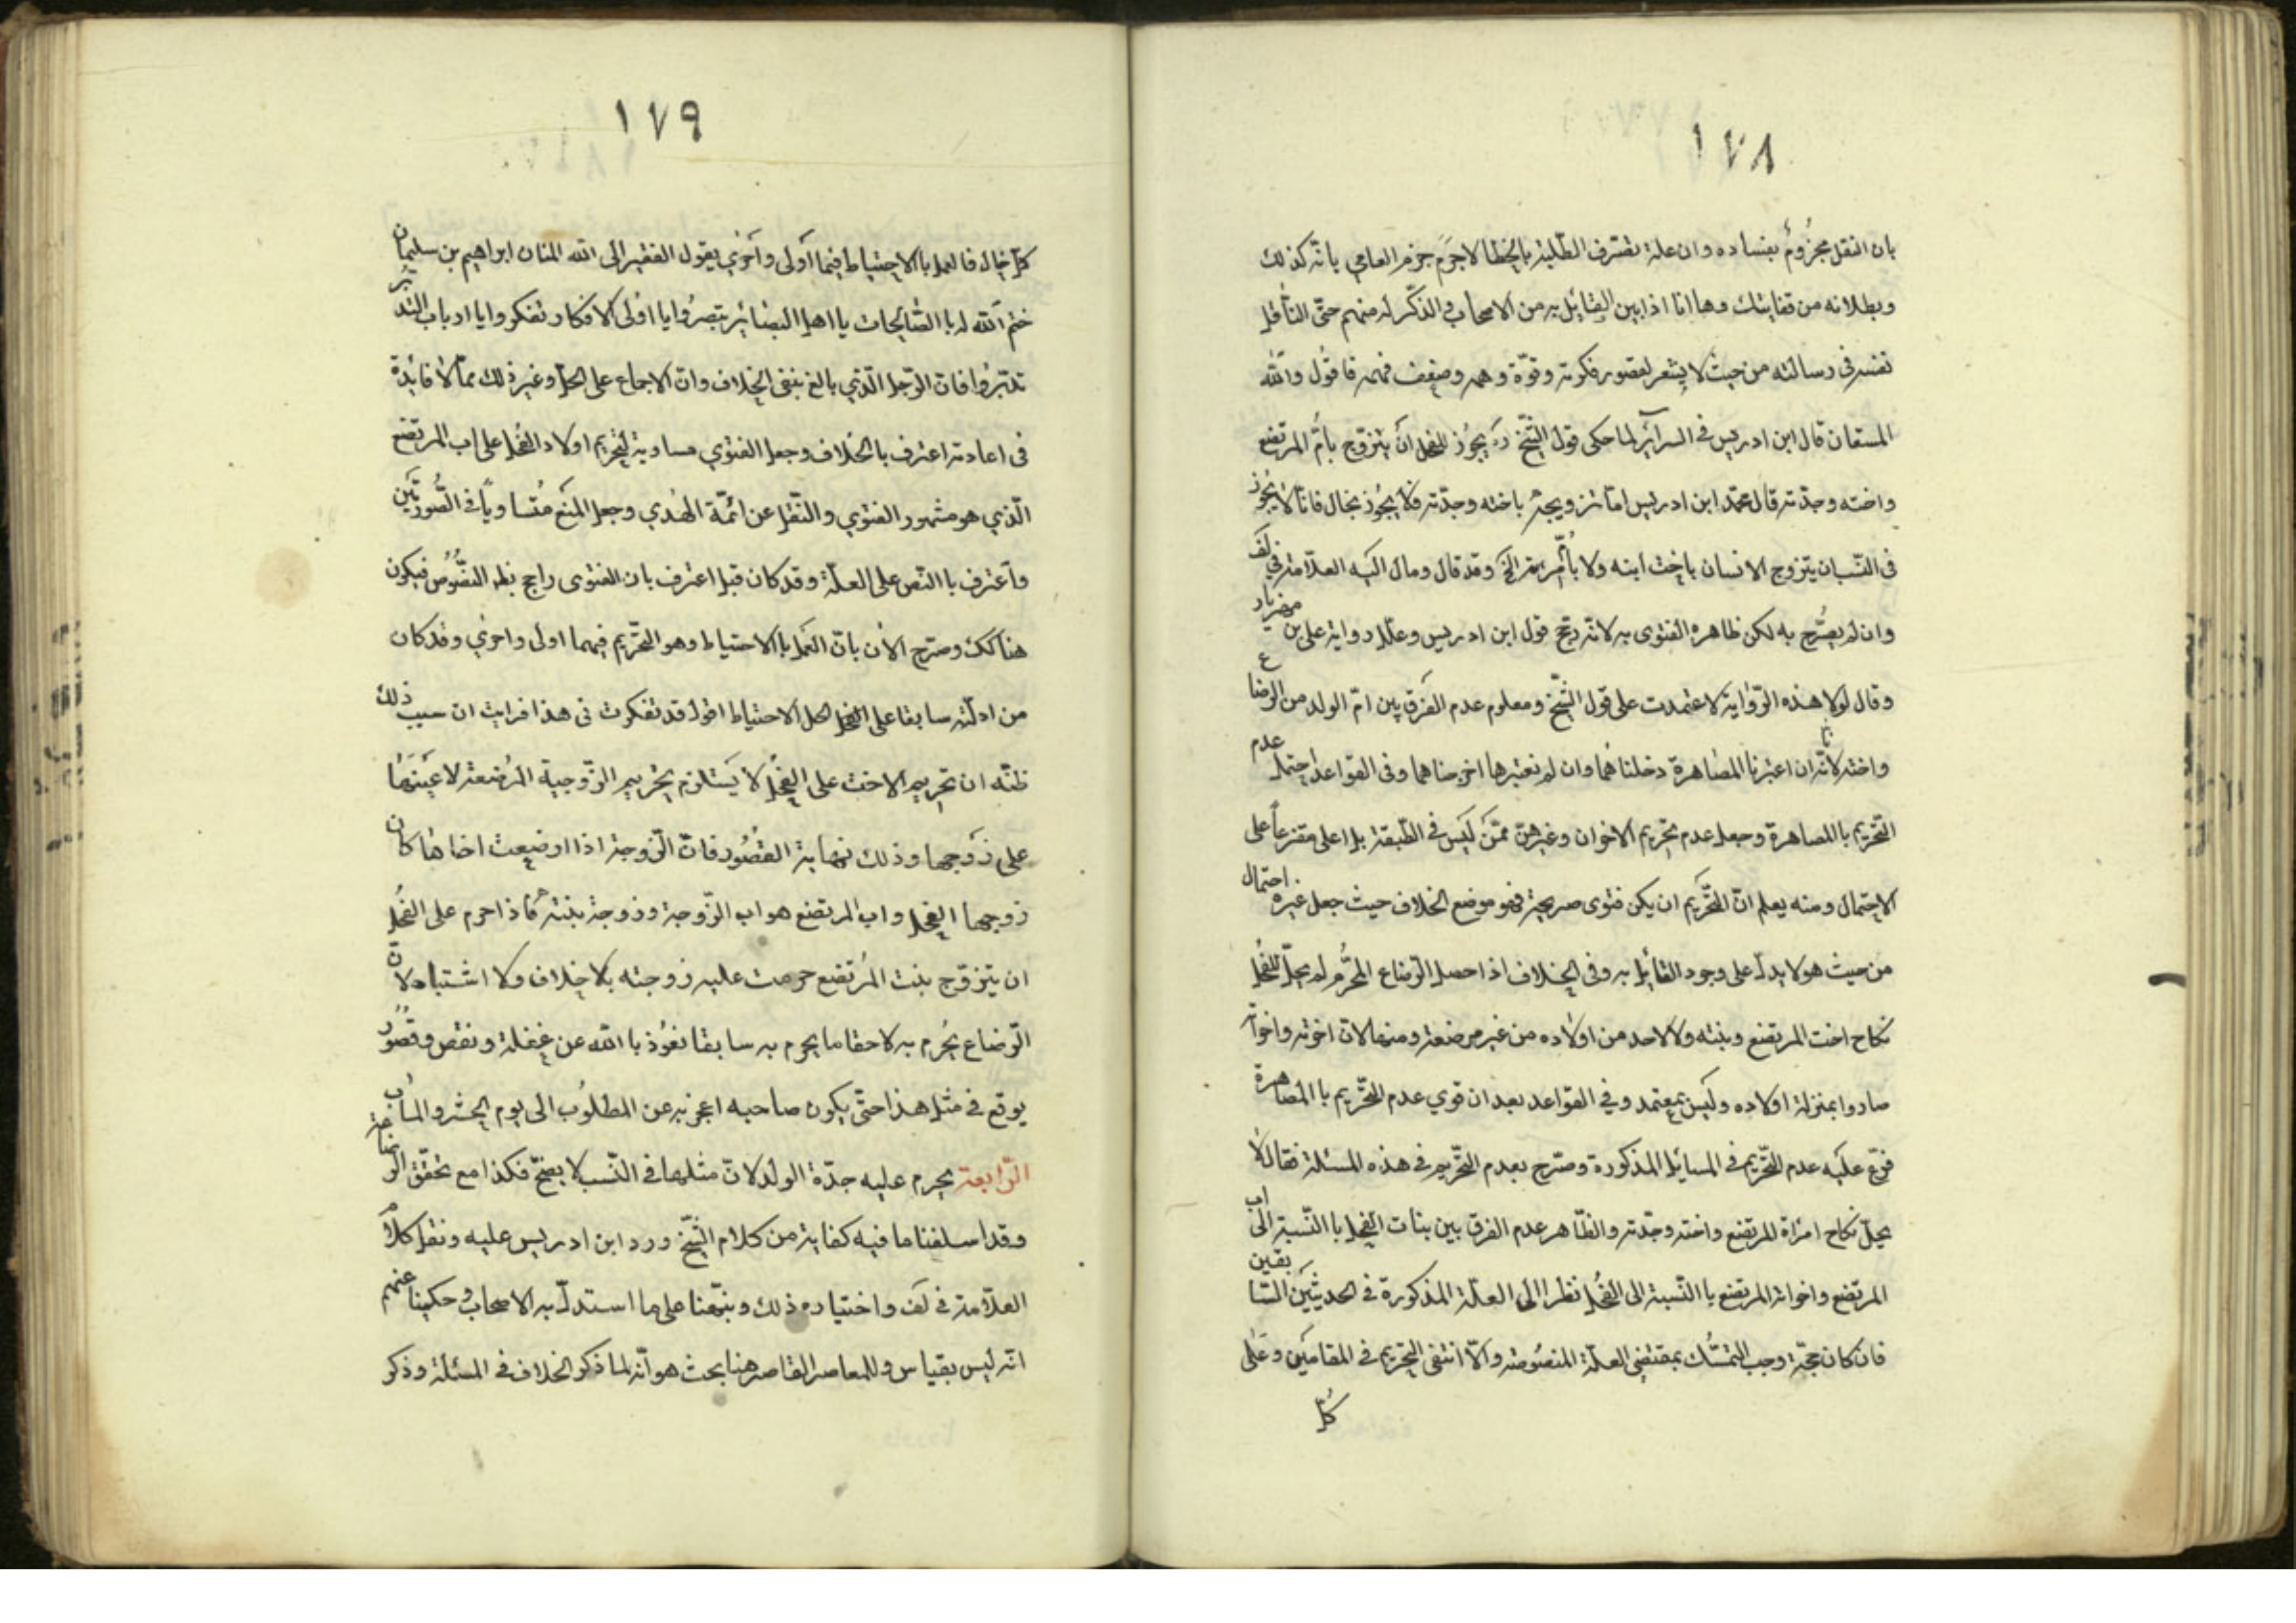 ١٧٨
بان النقل مجزوم بفساده وان علة تعترف الطلبة بالخطا لاجرم جزم العامي بانه كذلك
وبطلانه من قضايتك وها انا اذا بين القائل به من الاصحاب والذكر له منهم حتى الناقل
نفسه في رسالته من حيث لا يشعر لقصور فكرته وقوة وهمه وضعف فهمه فاقول والله
المستعان قال ابن ادريس في السرائر لما حكى قول الشيخ ره يجوز للفحل ان يتزوج بام المرتضع
واخته وجدته قال محمد ابن ادريس اما تزويجه باخته وجدته فلا يجوز بحال فانا لا نجوز
في النسب ان يتزوج الانسان باخت ابنه ولا بام امرأته الخ وقد قال ومال اليه العلامة في لف
وان لم يصرح به لكن ظاهره الفتوى به لانه رجح قول ابن ادريس وعلل رواية علي بن مهزيار
وقال لولا هذه الرواية لاعتمدت على قول الشيخ ومعلوم عدم الفرق بين ام الولد من الرضاع
واخته لانا ان اعتبرنا المصاهرة دخلناهما وان لم نعتبرها اخرجناهما وفى القواعد احتمل عدم
التحريم با المصاهرة وجعل عدم تحريم الاخوان وغيرهن ممن ليس في الطبقة بل اعلى مفرعا على
الاحتمال ومنه يعلم ان التحريم ان يكن فتوى صريحة فهو موضع الخلاف حيث جعل غيره احتمال
من حيث هو لا يدل على وجود القائل به وفي الخلاف اذا حصل الرضاع المحرم لم يحل للفحل
نكاح اخت المرتضع وبنته ولا لاحد من اولاده من غير مرضعة ومنها لان اخوته واخواته
صاروا بمنزلة اولاده وليس بمعتمد وفي القواعد بعد ان قوي عدم التحريم با المصاهرة
فرع عليه عدم التحريم في المسايل المذكورة وصرح بعدم التحريم في هذه المسئلة فقال لا
يحل نكاح امراة المرتضع واخته وجدته والظاهر عدم الفرق بين بنات الفحل با النسبة الى اب
المرتضع واخواته المرتضع با النسبة الى الفحل نظرا الى العلة المذكورة في الحديثين السابقين
فان كان حجة وجب التمسك بمقتضى العلة المنصوصة والا انتفى التحريم في المقامين وعلى
كل
١٧٩
كل حال فالعمل با الاحتياط فيما اولى واحري يقول الفقير الى الله المنان ابراهيم بن سليمان
ختم الله له با الصالحات يا اهل البصائر تبصروا يا اولى الافكار وتفكروا يا ارباب التدبر
تدبروا فان الرجل الذي بالغ بنفى الخلاف وان الاجماع على الحل وغير ذلك مما لا فائدة
فى اعادته اعترف بالخلاف وجعل الفتوي مساوية لتحريم اولاد الفحل على اب المرتضع
الذي هو مشهور الفتوي والنقل عن ائمة الهدي وجعل المنع متساويا في الصورتين
واعترف با النص على العلة وقد كان قبل اعترف بان الفتوى راجح بظر النصوص فيكون
هنا كك وصرح الان بان العمل با الاحتياط وهو التحريم فيهما اولى واحري وقد كان
من ادلته سابقا على الفحل لحل الاحتياط اقول قد تفكرت في هذا فرايت ان سبب ذلك
ظنه ان تحريم الاخت على الفحل لا يستلزم تحريم الزوجية المرضعة لا عينها
على زوجها وذلك نهاية القصور فان الزوجة اذا ارضعت اخاها كان
زوجها الفحل واب المرتضع هو اب الزوجة وزوجة بنته فاذا حرم على الفحل
ان يتزوج بنت المرتضع حرمت عليه زوجته بلا خلاف ولا اشتباه لان
الرضاع يحرم به لاحقا ما يحرم به سابقا نعوذ با الله عن غفلة ونقص وقصور
يوقع في مثل هذا حتى يكون صاحبه اعجز به عن المطلوب الى يوم الحشر والماب
الرابعة يحرم عليه جدة الولد لان مثلها في النسب لا يصح فكذا مع تحقق الرضاعة
وقد اسلفنا ما فيه كفاية من كلام الشيخ ورد ابن ادريس عليه ونقل كلام
العلامة في لف واختياره ذلك ونبهنا على ما استدل به الاصحاب وحكينا عنهم
انه ليس بقياس وللمعاصر القاصر هنا بحث هو انه لما ذكر الخلاف في المسئلة وذكر